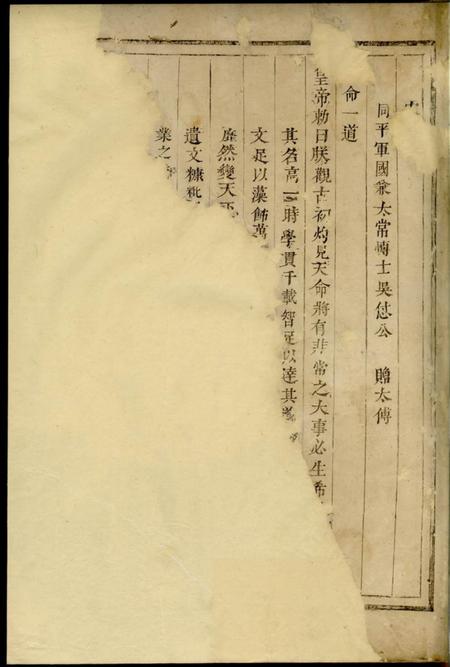 同平軍國兼太常博士吳公 贈太傅
命一道
皇帝勅曰朕觀古初灼見天命將有非常之大事必生希
其名高一時學貫千載智足以達其
文足以藻飾萬
靡然變天下
遺文糠粃
業之